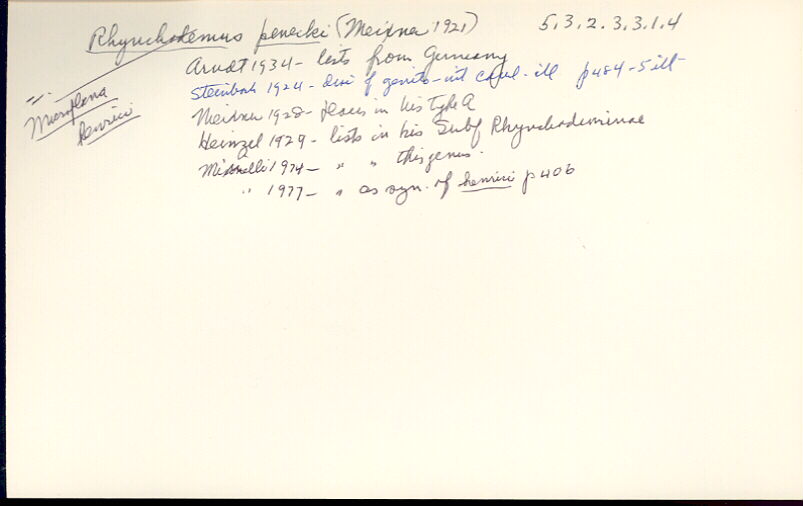 Rhynchodemus penecki (Meixner 1921) 5.3.2.3.3.1.4
Arndt 1934 - lists from Germany
Steinböh 1924 - disc of genito-int canal - ill p484-5 ill-
Meixner 1928 - places in his type A
Heinzel 1929 - lists in his Subf Rhynchodeminae
Minelli 1974 - " " this genus.
" 1977 - " as syn. of henrici p406
=.
Microplana
henrici